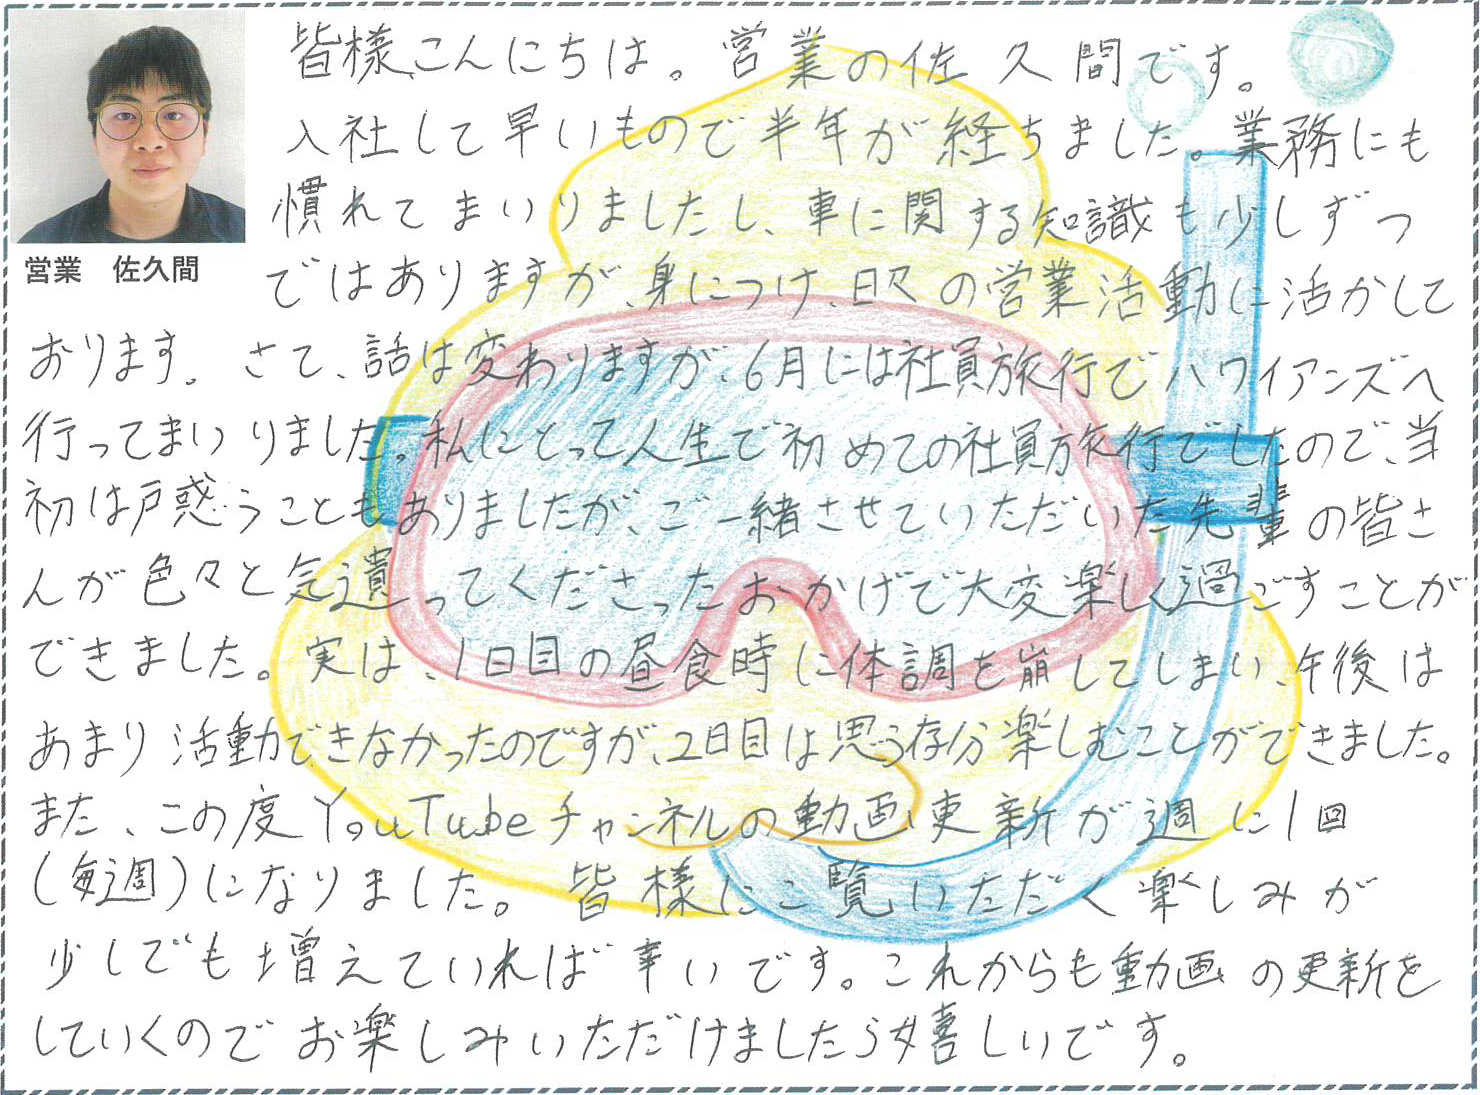 皆様、こんにちは。営業の佐久間です。
入社して早いもので半年が経ちました。業務にも
慣れてまいりましたし、車に関する知識も少しずつ
営業　佐久間
ではありますが、身につけ、日々の営業活動に活かして
おります。さて、話は変わりますが、6月には社員旅行でハワイアンズへ
行ってまいりました。私にとって人生で初めての社員旅行でしたので、当
初は戸惑うこともありましたが、ご一緒させていただいた先輩の皆さ
んが色々と気遣ってくださったおかげで大変楽しく過ごすことが
できました。実は、1日目の昼食時に体調を崩してしまい、午後は
あまり活動できなかったのですが、2日目は思う存分楽しむことができました。
また、この度YouTubeチャンネルの動画更新が週に1回
(毎週)になりました。皆様にご覧いただく楽しみが
少しでも増えていれば幸いです。これからも動画の更新を
していくのでお楽しみいただけましたら嬉しいです。